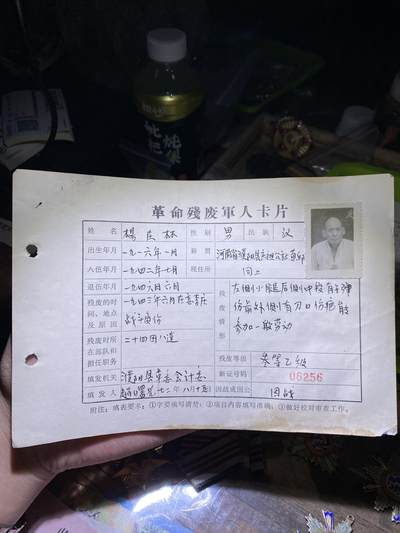 革命殘废軍人卡片
姓名 楊庆林 性别 男 民族 汉
出生年月 一九一六年一月 籍贯 河南省濮阳县
入伍年月 一九四二年七月 现住所 同上
退伍年月 一九四六年六月
残废的时间、地点及原因 一九四三年六月在
战斗负伤
残废时所在部队和担任职务 二十四团八连
残废情形 左侧小腿后侧中段有子弹
伤疤外侧有刀口伤疤能
参加一般劳动
残废等级 叁等乙级
新证号码 06256
填发机关 濮阳县革委会
填发人 七二年八月十五 因战或因公 因战
附注:填表要求:①字要填写清楚;②项目内容填写准确;③做好校对审查工作。